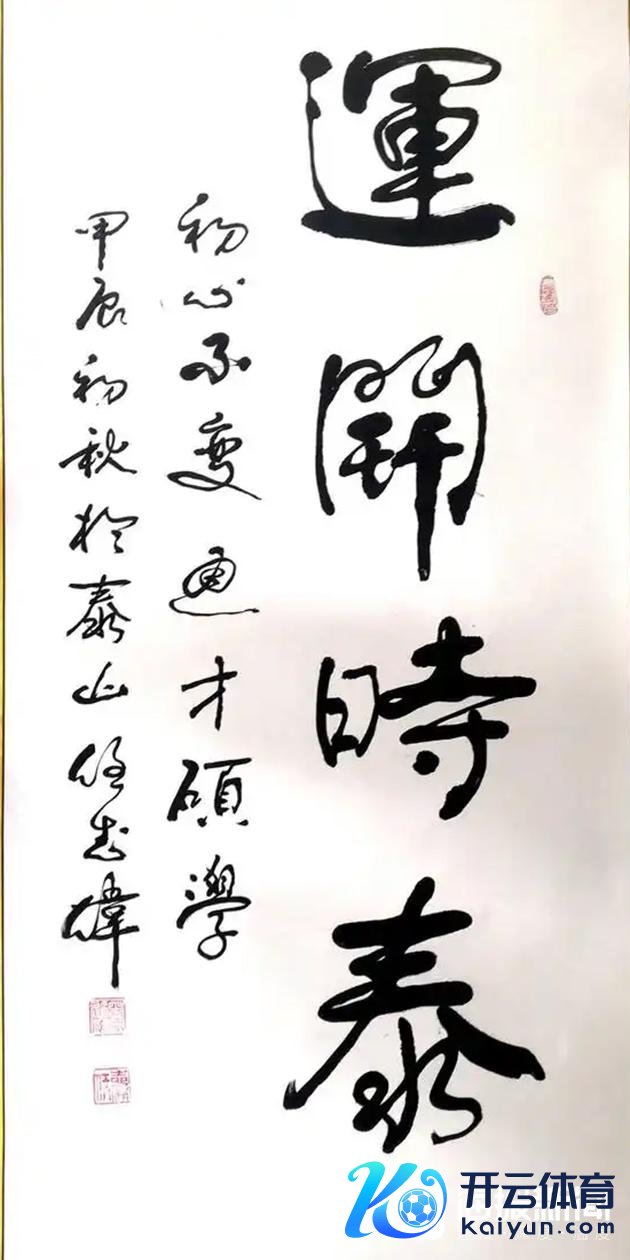 運開時泰
初心不變通才碩學
甲辰初秋於泰山任志偉
开云体育
Kaiyun.com